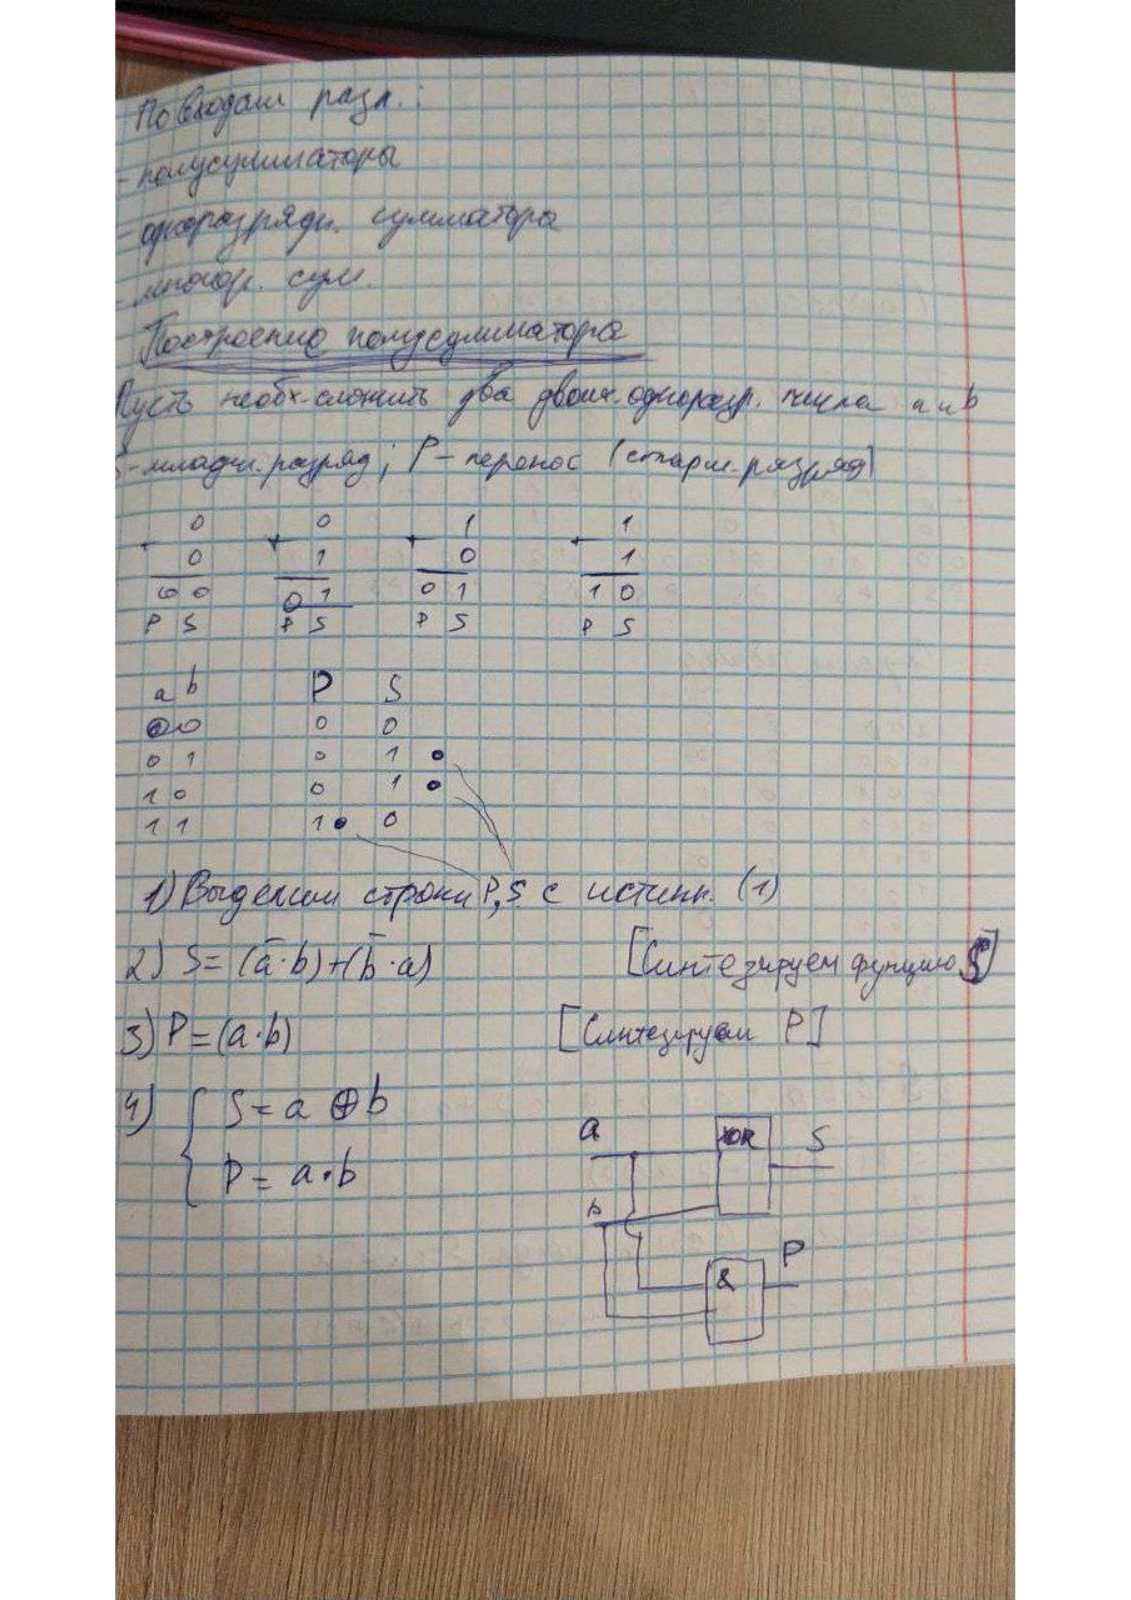 По входам разл.:
- полусумматоры
- одноразрядн. сумматора
- многор. сум.
Построение полусумматора
Пусть необх. сложить два двоич. одноразр. числа a и b
S - младш. разряд; P - перенос (старш. разряд)
0 0 1 1
+ + + +
0 1 0 1
00 01 01 10
P S P S P S P S
a b P S
0 0 0 0
0 1 0 1
1 0 0 1
1 1 1 0
1) Выделим строки P, S с истинн. (1)
2) S = (a̅·b)+(b̅·a) [Синтезируем функцию S]
3) P = (a·b) [Синтезируем P]
4) { S = a ⊕ b
P = a·b
a XOR S
b
& P